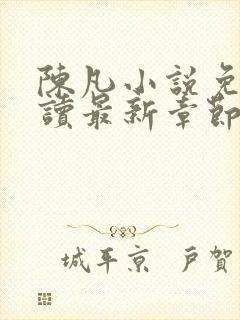 陳凡小說免
讀最新章節
城平京 戶賀